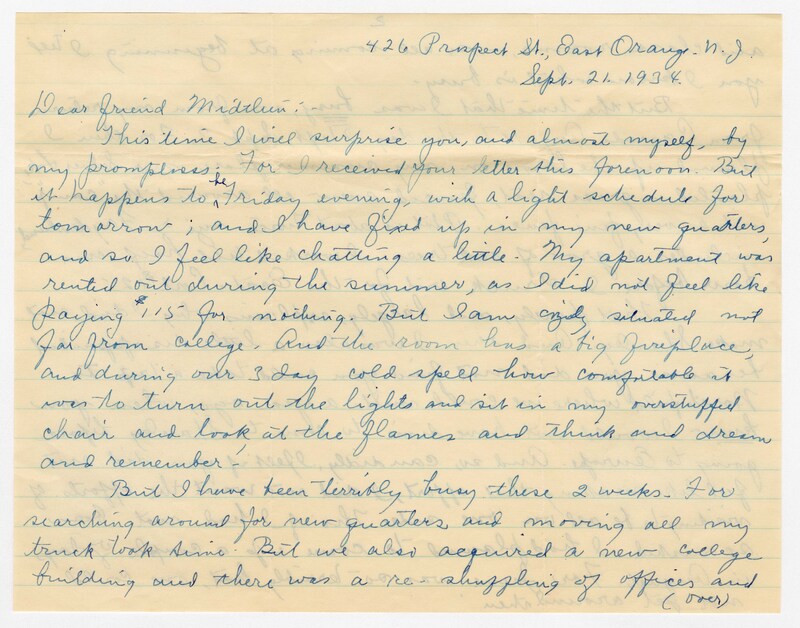 426 Prospect St., East Orange. N. J.
Sept. 21. 1934.
Dear friend Midtlien:-
This time I will surprise you, and almost myself, by
my promptness. For I received your letter this forenoon. But
it happens to be Friday evening, with a light schedule for
tomorrow; and I have fixed up in my new quarters,
and so I feel like chatting a little. My apartment was
rented out during the summer, as I did not feel like
paying $115 for nothing. But I am cozily situated not
far from college. And the room has a big fireplace,
and during our 3 day cold spell how comfortable it
was to turn out the lights and sit in my overstuffed
chair and look at the flames and think and dream
and remember-
But I have been terribly busy these 2 weeks. For
searching around for new quarters and moving all my
truck took time. But we also acquired a new college
building and there was a re-shuffling of offices and
(over)